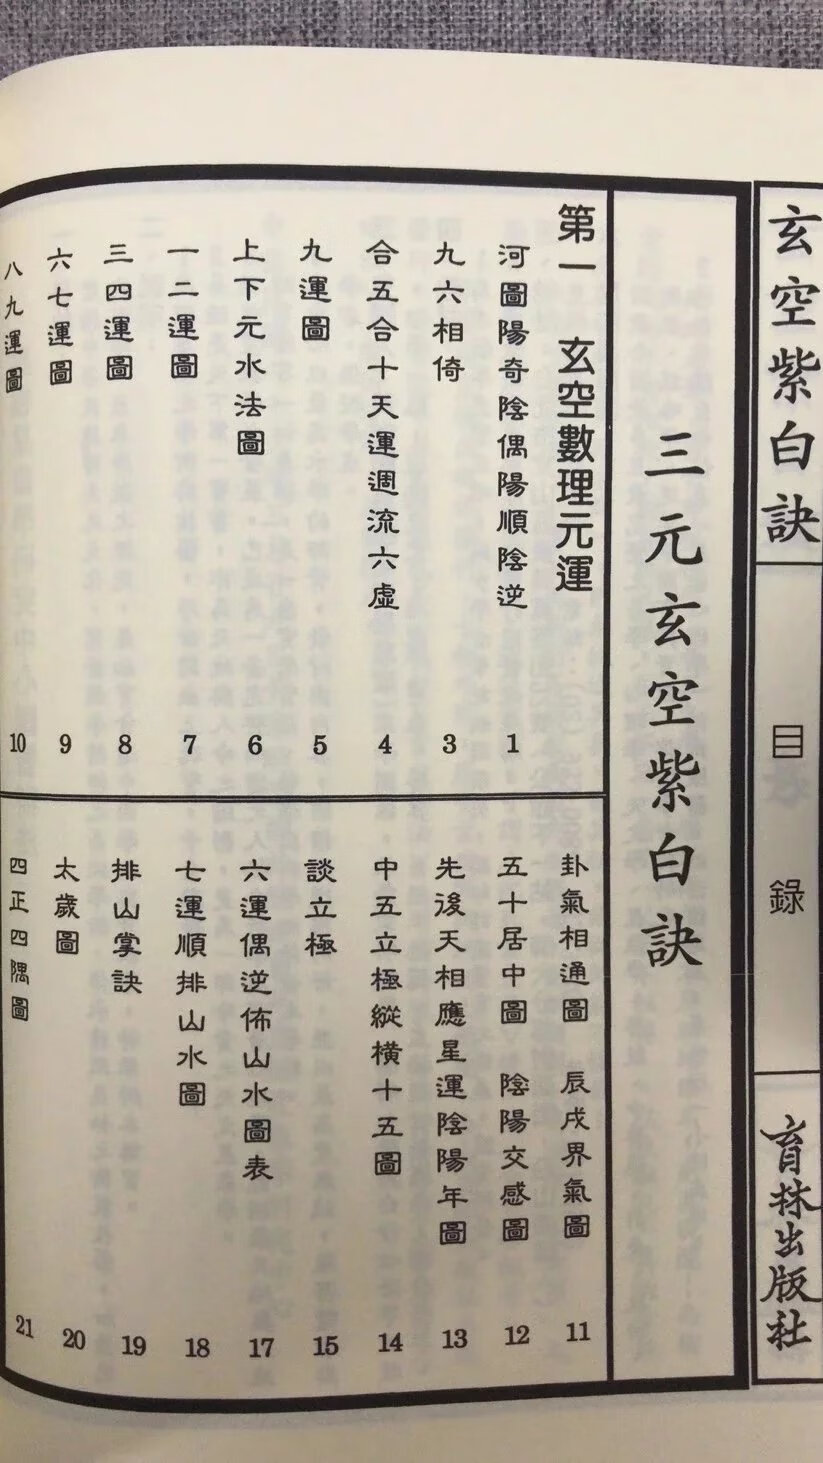 玄空紫白訣
目錄
育林出版社
三元玄空紫白訣
第一 玄空數理元運
河圖陽奇陰偶陽順陰逆 1
九六相倚 3
合五合十天運週流六虛 4
九運圖 5
上下元水法圖 6
一二運圖 7
三四運圖 8
六七運圖 9
八九運圖 10
卦氣相通圖 辰戌界氣圖 11
五十居中圖 陰陽交感圖 12
先後天相應星運陰陽年圖 13
中五立極縱橫十五圖 14
談立極 15
六運偶逆佈山水圖表 17
七運順排山水圖 18
排山掌訣 19
太歲圖 20
四正四隅圖 21